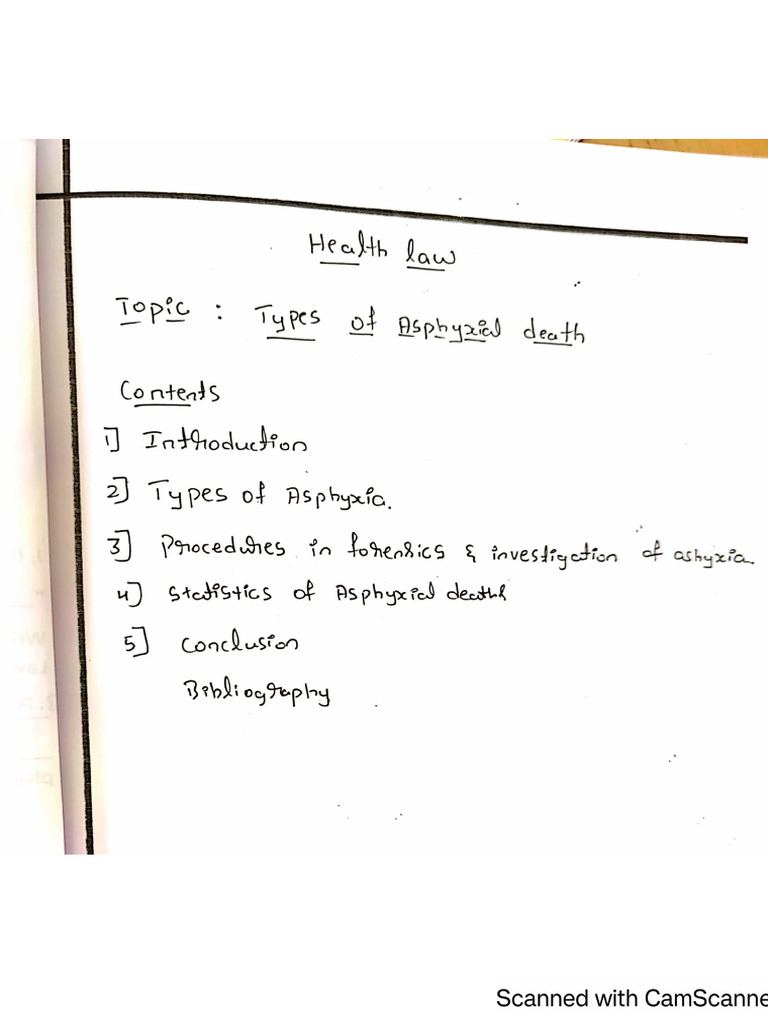 Health law
Topic : Types of Asphyxial death
Contents
1] Introduction
2] Types of Asphyxia.
3] Procedures in forensics & investigation of ashyxia.
4] Statistics of Asphyxial deaths
5] Conclusion
Bibliography
Scanned with CamScanne